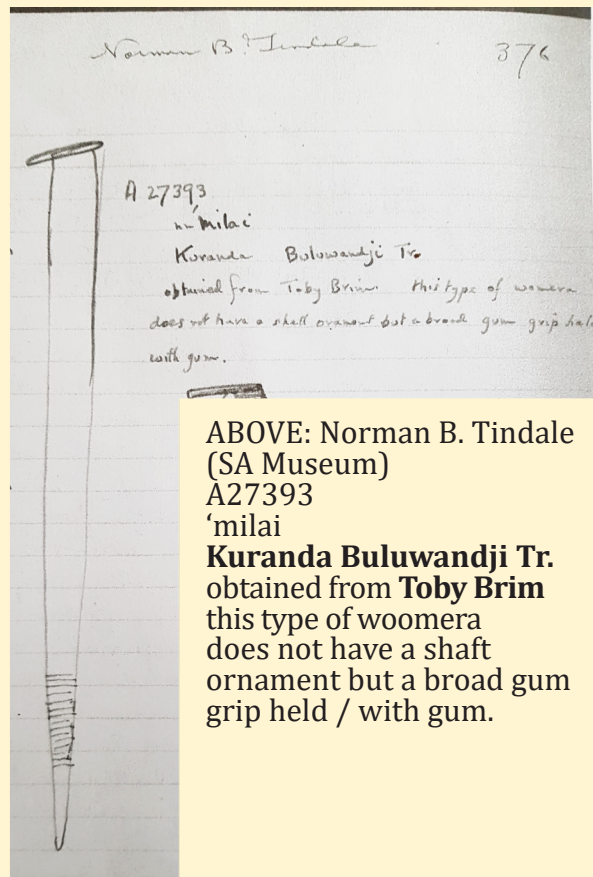 Norman B. Tindale
376
A 27393
'milai
Kuranda Buluwandji Tr.
obtained from Toby Brim. this type of womera
does not have a shell ornament but a broad gum grip
with gum.
ABOVE: Norman B. Tindale
(SA Museum)
A27393
‘milai
Kuranda Buluwandji Tr.
obtained from Toby Brim
this type of woomera
does not have a shaft
ornament but a broad gum
grip held / with gum.